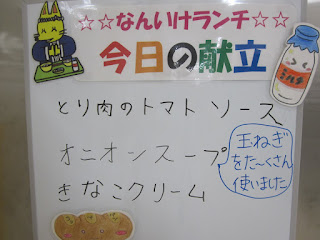 ☆☆なんいけランチ☆☆
今日の献立
ミルク
とり肉のトマト ソース
オニオンスープ
玉ねぎ
をた〜くさん
使いました
きなこクリーム